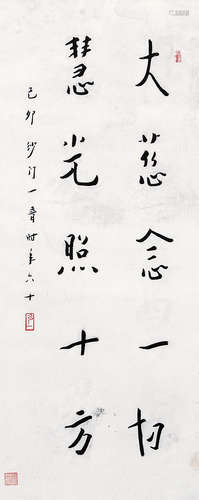 大慈念一切
慧光照十方
己卯 沙门一音 时年六十